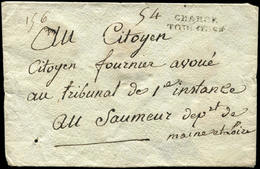 156
54
CHARGÉ
Au Citoyen
Citoyen fournier avoué
au tribunal de 1ere instance
au Saumeur depet de
maine et Loire